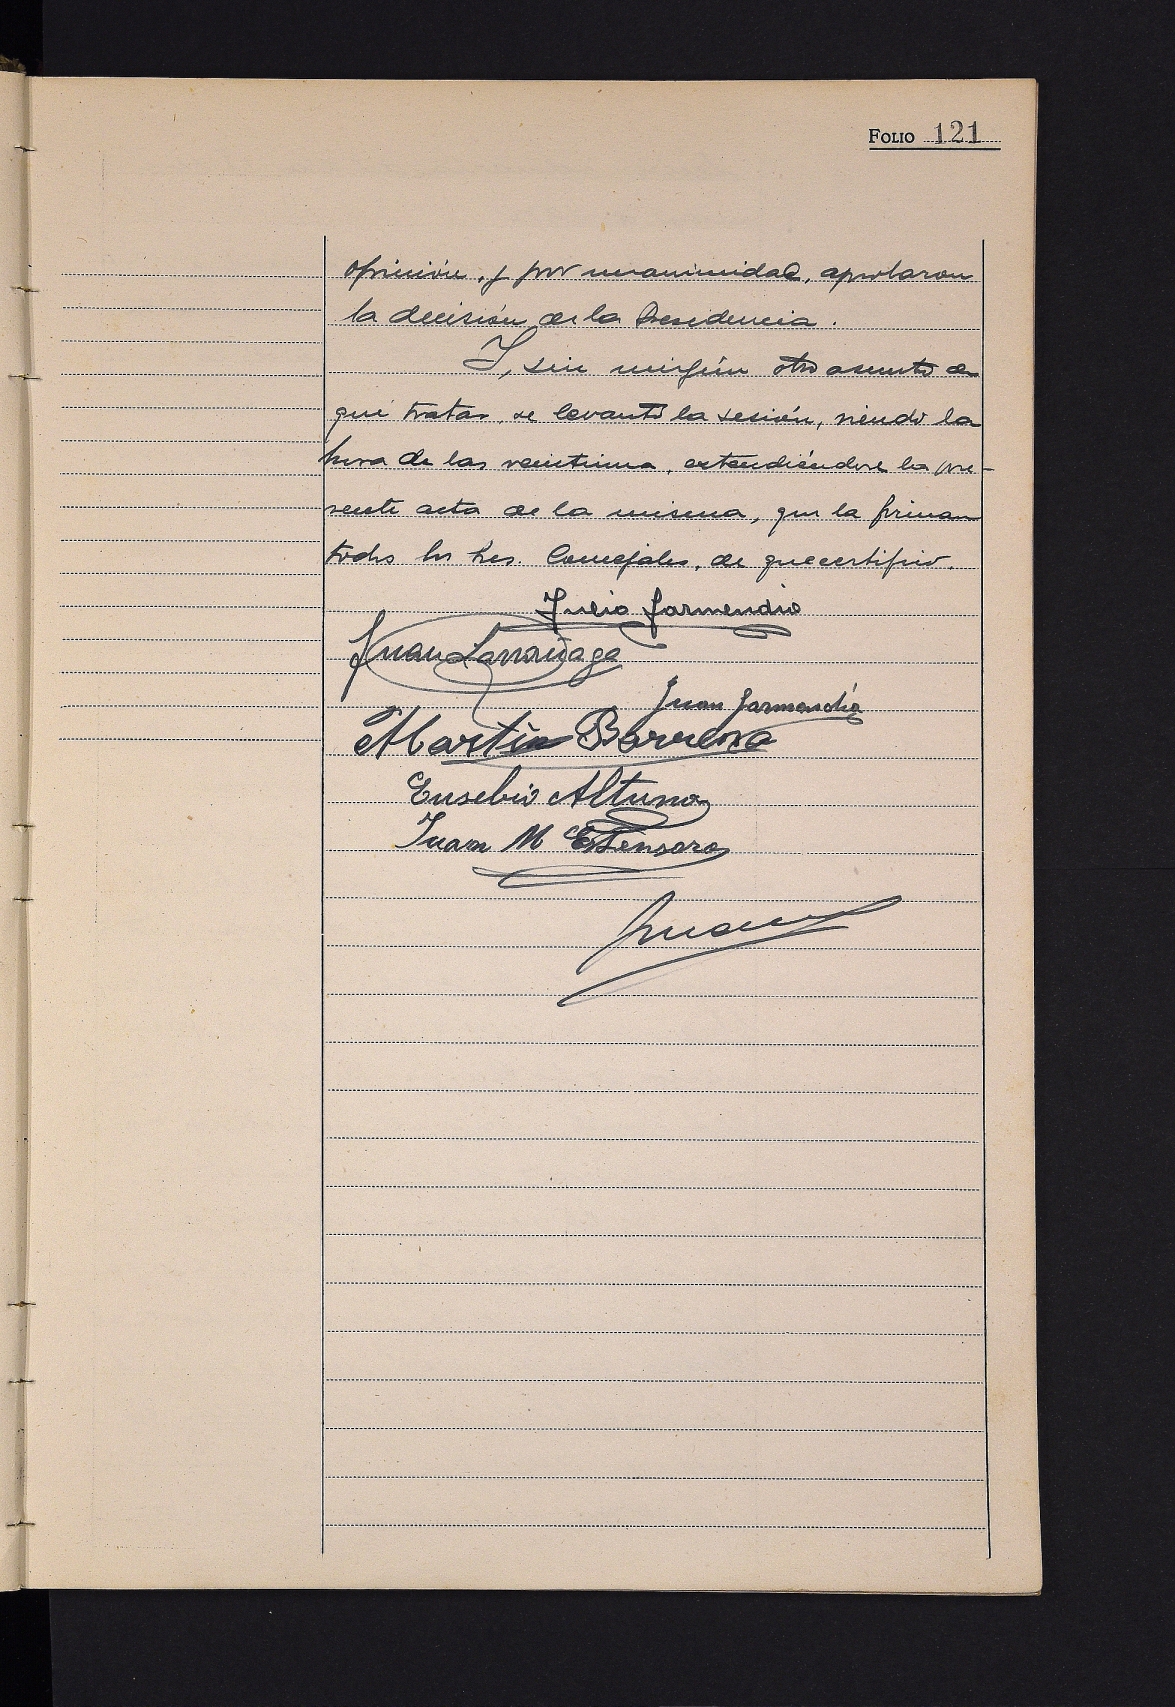 FOLIO 121
opinión, y por unanimidad, aprobaron
la decisión de la Presidencia.
Y, sin ningún otro asunto de
qué tratar, se levantó la sesión, siendo la
hora de las veintiuna, extendiéndose la pre-
sente acta de la misma, que la firman
todos los Sres. Concejales, de que certifico.
Julio Garmendia
Juan Larrañaga
Juan Garmendia
Martín Barrena
Eusebio Altuna
Juan M Estensoro